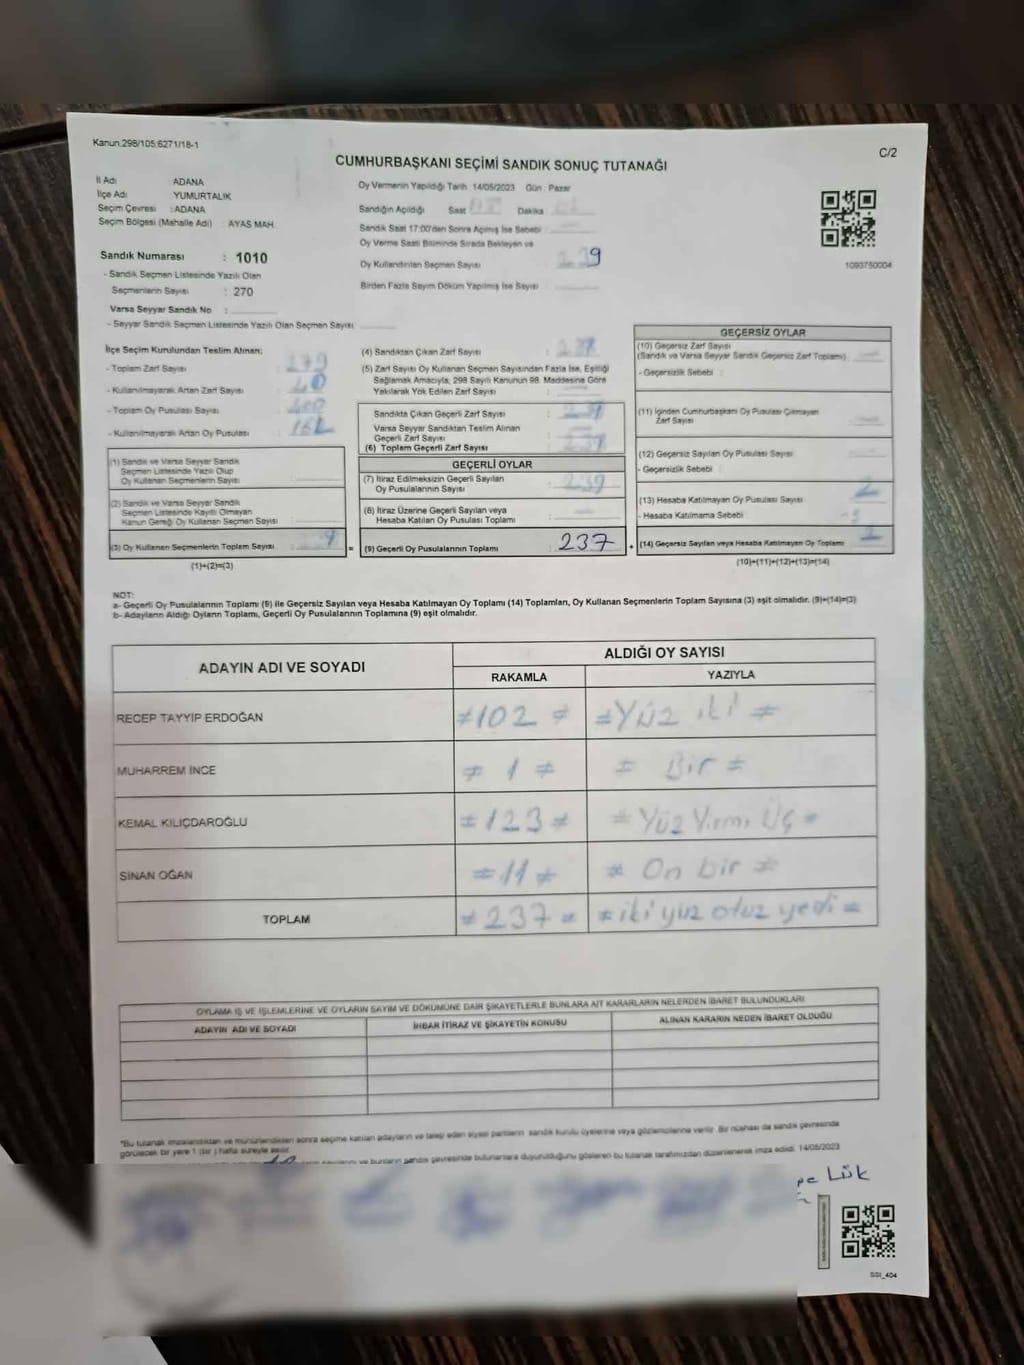 Kanun.298/105;6271/18-1
C/2
CUMHURBAŞKANI SEÇİMİ SANDIK SONUÇ TUTANAĞI
İl Adı : ADANA
İlçe Adı : YUMURTALIK
Seçim Çevresi : ADANA
Seçim Bölgesi (Mahalle Adı) : AYAS MAH.
Sandık Numarası : 1010
- Sandık Seçmen Listesinde Yazılı Olan
Seçmenlerin Sayısı : 270
Varsa Seyyar Sandık No :
- Seyyar Sandık Seçmen Listesinde Yazılı Olan Seçmen Sayısı
Oy Vermenin Yapıldığı Tarih 14/05/2023 Gün : Pazar
Sandığın Açıldığı Saat Dakika
Sandık Saat 17:00'den Sonra Açımış İse Sebebi :
Oy Verme Saati Bitiminde Sırada Bekleyen ve
Oy Kullandırılan Seçmen Sayısı : 239
Birden Fazla Sayım Döküm Yapılmış İse Sayısı :
1093750004
İlçe Seçim Kurulundan Teslim Alınan:
- Toplam Zarf Sayısı : 279
- Kullanılmayarak Artan Zarf Sayısı : 40
- Toplam Oy Pusulası Sayısı : 400
- Kullanılmayarak Artan Oy Pusulası :
(1) Sandık ve Varsa Seyyar Sandık
Seçmen Listesinde Yazılı Olup
Oy Kullanan Seçmenlerin Sayısı :
(2) Sandık ve Varsa Seyyar Sandık
Seçmen Listesinde Kayıtlı Olmayan
Kanun Gereği Oy Kullanan Seçmen Sayısı :
(3) Oy Kullanan Seçmenlerin Toplam Sayısı :
(1)+(2)=(3)
(4) Sandıktan Çıkan Zarf Sayısı :
(5) Zarf Sayısı Oy Kullanan Seçmen Sayısından Fazla İse, Eşitliği
Sağlamak Amacıyla, 298 Sayılı Kanunun 98. Maddesine Göre
Yakılarak Yok Edilen Zarf Sayısı :
Sandıkta Çıkan Geçerli Zarf Sayısı :
Varsa Seyyar Sandıktan Teslim Alınan
Geçerli Zarf Sayısı :
(6) Toplam Geçerli Zarf Sayısı :
GEÇERLİ OYLAR
(7) İtiraz Edilmeksizin Geçerli Sayılan
Oy Pusulalarının Sayısı : 239
(8) İtiraz Üzerine Geçerli Sayılan veya
Hesaba Katılan Oy Pusulası Toplamı :
= (9) Geçerli Oy Pusulalarının Toplamı : 237
GEÇERSİZ OYLAR
(10) Geçersiz Zarf Sayısı
(Sandık ve Varsa Seyyar Sandık Geçersiz Zarf Toplamı) :
- Geçersizlik Sebebi :
(11) İçinden Cumhurbaşkanı Oy Pusulası Çıkmayan
Zarf Sayısı :
(12) Geçersiz Sayılan Oy Pusulası Sayısı :
- Geçersizlik Sebebi :
(13) Hesaba Katılmayan Oy Pusulası Sayısı : 2
- Hesaba Katılmama Sebebi :
+ (14) Geçersiz Sayılan veya Hesaba Katılmayan Oy Toplamı :
(10)+(11)+(12)+(13)=(14)
NOT:
a- Geçerli Oy Pusulalarının Toplamı (9) ile Geçersiz Sayılan veya Hesaba Katılmayan Oy Toplamı (14) Toplamları, Oy Kullanan Seçmenlerin Toplam Sayısına (3) eşit olmalıdır. (9)+(14)=(3)
b- Adayların Aldığı Oyların Toplamı, Geçerli Oy Pusulalarının Toplamına (9) eşit olmalıdır.
ADAYIN ADI VE SOYADI
ALDIĞI OY SAYISI
RAKAMLA
YAZIYLA
RECEP TAYYİP ERDOĞAN ≠102≠ =Yüz iki≠
MUHARREM İNCE ≠ 1 ≠ = Bir =
KEMAL KILIÇDAROĞLU =123≠ = Yüz Yirmi Üç =
SİNAN OĞAN =11≠ ≠ On bir =
TOPLAM ≠237= ≠iki yüz otuz yedi=
OYLAMA İŞ VE İŞLEMLERİNE VE OYLARIN SAYIM VE DÖKÜMÜNE DAİR ŞİKAYETLERLE BUNLARA AİT KARARLARIN NELERDEN İBARET BULUNDUKLARI
ADAYIN ADI VE SOYADI
İHBAR İTİRAZ VE ŞİKAYETİN KONUSU
ALINAN KARARIN NEDEN İBARET OLDUĞU
"Bu tutanak imzalandıktan ve mühürlendikten sonra seçime katılan adayların ve talep eden siyasi partilerin sandık kurulu üyelerine veya gözlemcilerine verilir. Bir nüshası da sandık çevresinde
görülecek bir yere 1 (bir ) hafta süreyle asılır.
ve bunların sandık çevresinde bulunanlara duyurulduğunu gösteren bu tutanak tarafımızdan düzenlenerek imza edildi. 14/05/2023
SGI_404